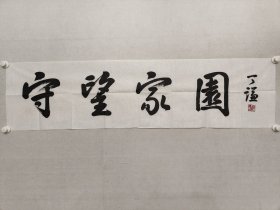 守望家園
丁谦